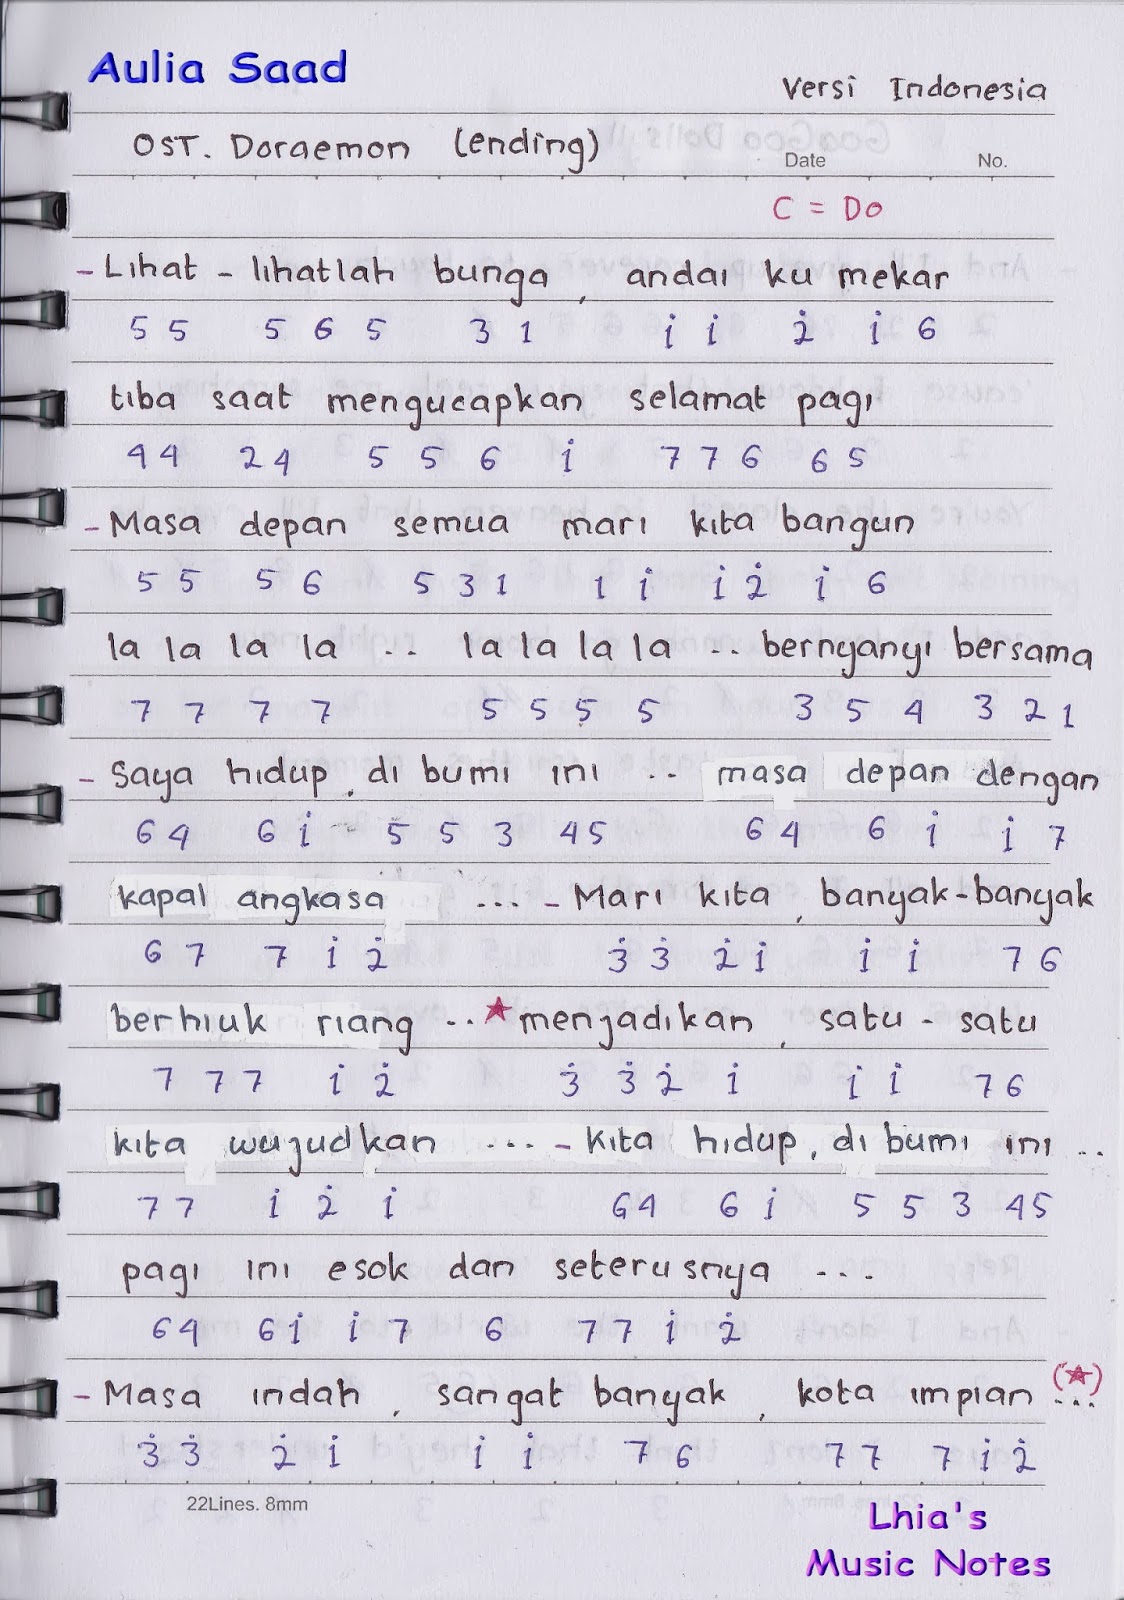 Aulia Saad
Versi Indonesia
OST. Doraemon (ending)
Date No.
C = Do
- Lihat - lihatlah bunga , andai ku mekar
5 5 5 6 5 3 1 i̇ i̇ 2̇ i̇ 6
tiba saat mengucapkan selamat pagi
4 4 2 4 5 5 6 i̇ 7 7 6 6 5
- Masa depan semua mari kita bangun
5 5 5 6 5 3 1 1 i̇ i̇ 2̇ i̇ 6
la la la la .. la la la la .. bernyanyi bersama
7 7 7 7 5 5 5 5 3 5 4 3 2 1
- Saya hidup, di bumi ini .. masa depan dengan
6 4 6 i̇ 5 5 3 4 5 6 4 6 i̇ i̇ 7
kapal angkasa .... - Mari kita , banyak-banyak
6 7 7 i̇ 2̇ 3̇ 3̇ 2̇ i̇ i̇ i̇ 7 6
berhiuk riang .. ★ menjadikan , satu - satu
7 7 7 i̇ 2̇ 3̇ 3̇ 2̇ i̇ i̇ i̇ 7 6
kita wujudkan ... - kita hidup, di bumi ini ..
7 7 i̇ 2̇ i̇ 6 4 6 i̇ 5 5 3 4 5
pagi ini esok dan seterusnya ...
6 4 6 i̇ i̇ 7 6 7 7 i̇ 2̇
- Masa indah , sangat banyak , kota impian ... (★)
3̇ 3̇ 2̇ i̇ i̇ i̇ 7 6 7 7 7 i̇ 2̇
22Lines. 8mm
Lhia's
Music Notes